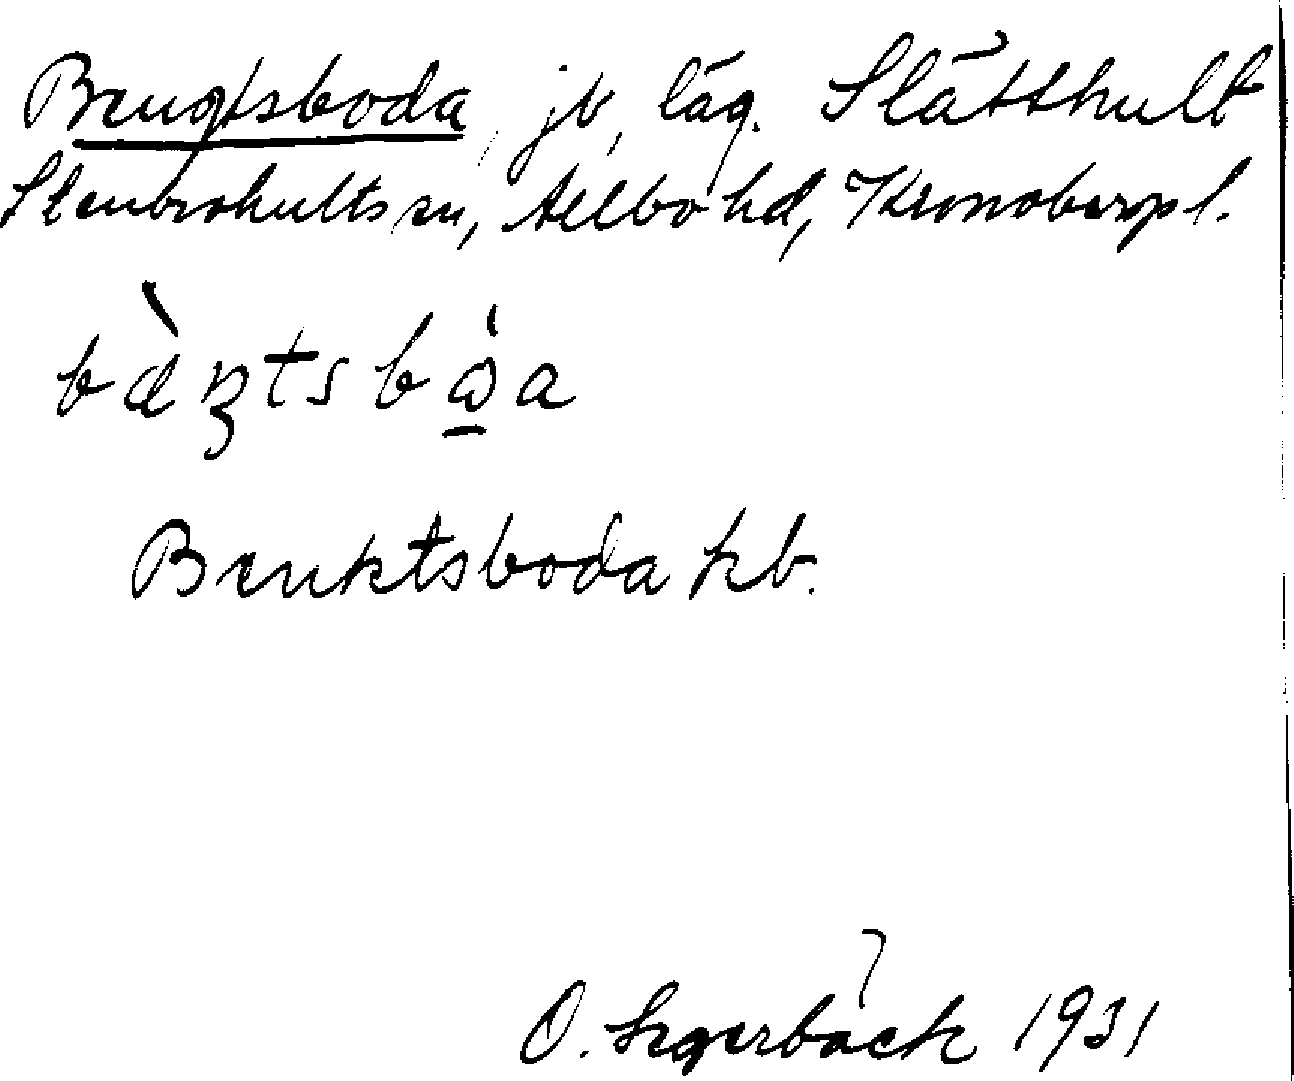 Bengtsboda, jb, läg. Slätthult
Stenbrohults sn, Allbo hd, Kronobergs l.
Benktsboda kb.
O. Segerbäck 1931